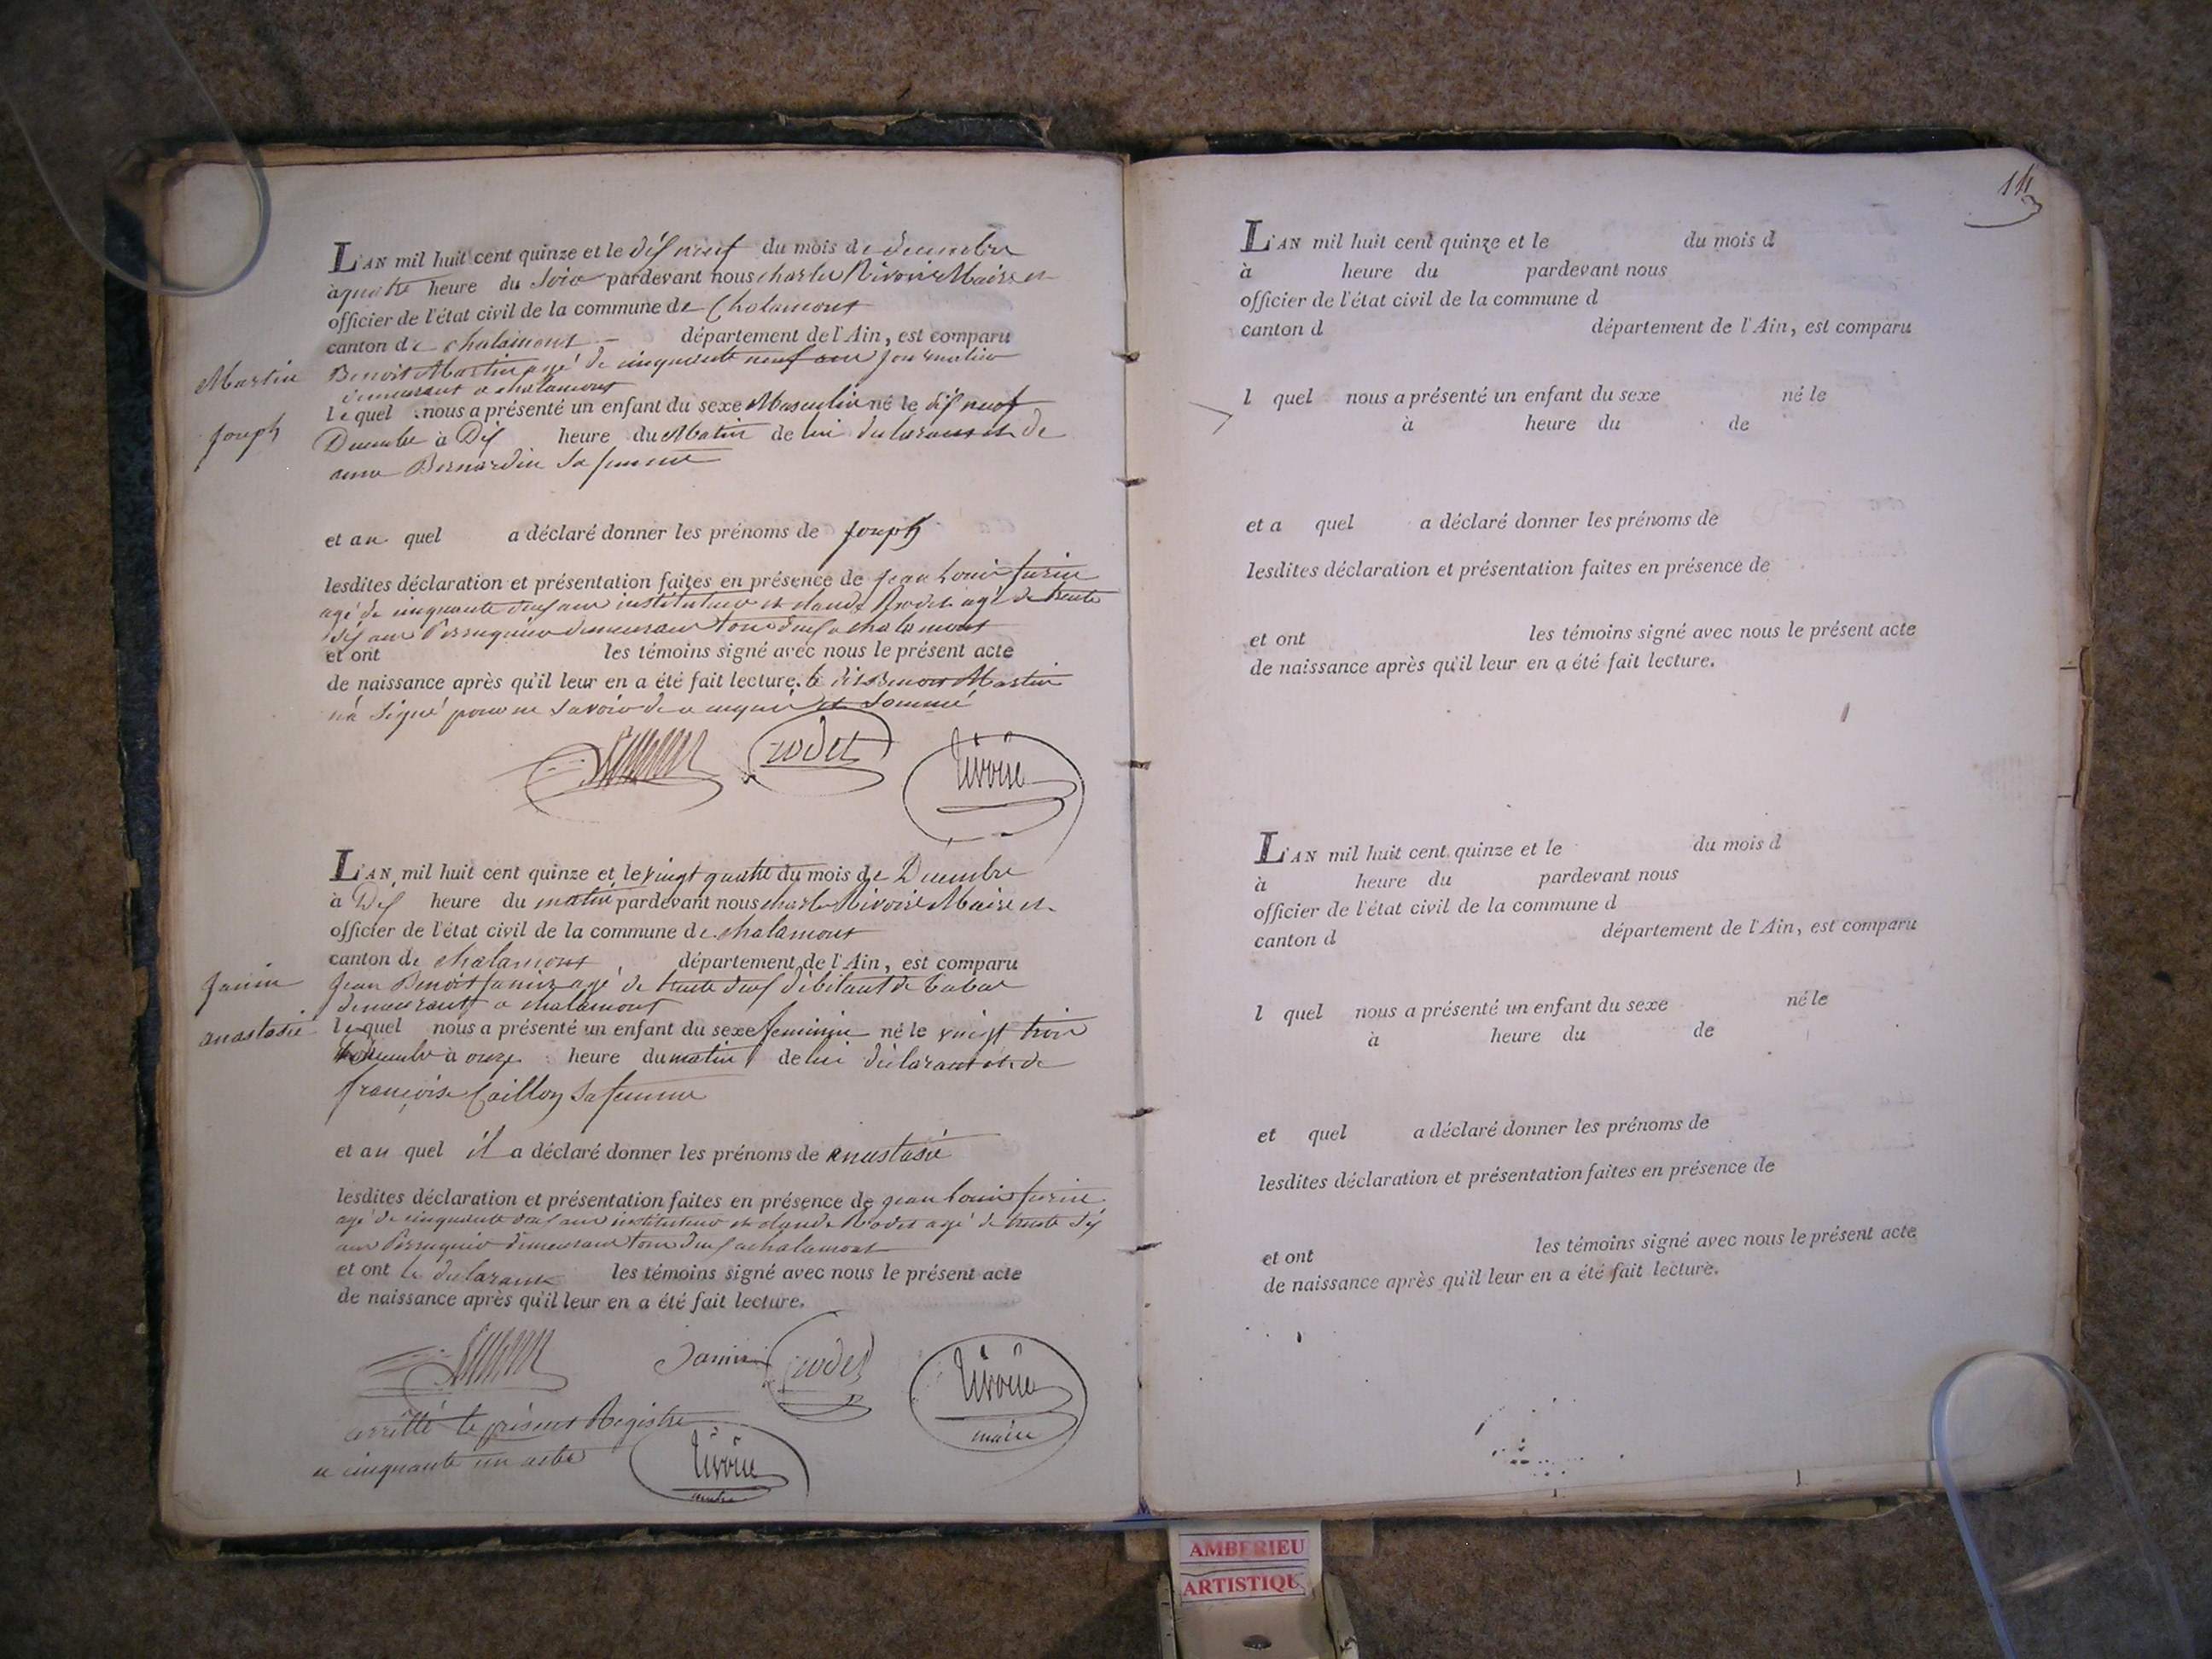 L'AN mil huit cent quinze et le dix neuf du mois de decembre
à quatre heure du Soir pardevant nous charles Rivoire Maire et
officier de l'état civil de la commune de Chalamont
canton de chalamont département de l'Ain, est comparu
Martin
Benoit Martin agé de cinquante neuf ans journalier
demeurant a chalamont
le quel nous a présenté un enfant du sexe Masculin né le dix neuf
Joseph
Decembre à Dix heure du Matin de lui declarant et de
anne Bernardin sa femme
et au quel a déclaré donner les prénoms de joseph
lesdites déclaration et présentation faites en présence de jean Louis
agé de cinquante deux ans instituteur et claude Rodet agé de trente
dix ans Perruquier demeurans tous deux a chalamont
et ont les témoins signé avec nous le présent acte
de naissance après qu'il leur en a été fait lecture. le dit Benoit Martin
n'a signé pour ne savoir de ce enquis et sommé
rodet
rivoire
L'AN mil huit cent quinze et le vingt quatre du mois de Decembre
à Dix heure du matin pardevant nous charles Rivoire Maire et
officier de l'état civil de la commune de chalamont
canton de chalamont département de l'Ain, est comparu
Janin
Jean Benoit Janin agé de trente deux débitant de tabac
demeurant a chalamont
anastasie
le quel nous a présenté un enfant du sexe feminin né le vingt trois
à onze heure du matin de lui déclarant et de
françoise Caillon sa femme
et au quel il a déclaré donner les prénoms de anastasie
lesdites déclaration et présentation faites en présence de jean louis
agé de cinquante deux ans instituteur et claude Rodet agé de trente dix
ans Perruquier demeurans tous deux a chalamont
et ont le declarant les témoins signé avec nous le présent acte
de naissance après qu'il leur en a été fait lecture.
Janin
rodet
rivoire
maire
arrêtté le présent Registre
a cinquante un actes
rivoire
14
L'AN mil huit cent quinze et le du mois d
à heure du pardevant nous
officier de l'état civil de la commune d
canton d département de l'Ain, est comparu
l quel nous a présenté un enfant du sexe né le
à heure du de
et a quel a déclaré donner les prénoms de
lesdites déclaration et présentation faites en présence de
et ont les témoins signé avec nous le présent acte
de naissance après qu'il leur en a été fait lecture.
L'AN mil huit cent quinze et le du mois d
à heure du pardevant nous
officier de l'état civil de la commune d
canton d département de l'Ain, est comparu
l quel nous a présenté un enfant du sexe né le
à heure du de
et quel a déclaré donner les prénoms de
lesdites déclaration et présentation faites en présence de
et ont les témoins signé avec nous le présent acte
de naissance après qu'il leur en a été fait lecture.
AMBERIEU
ARTISTIQU